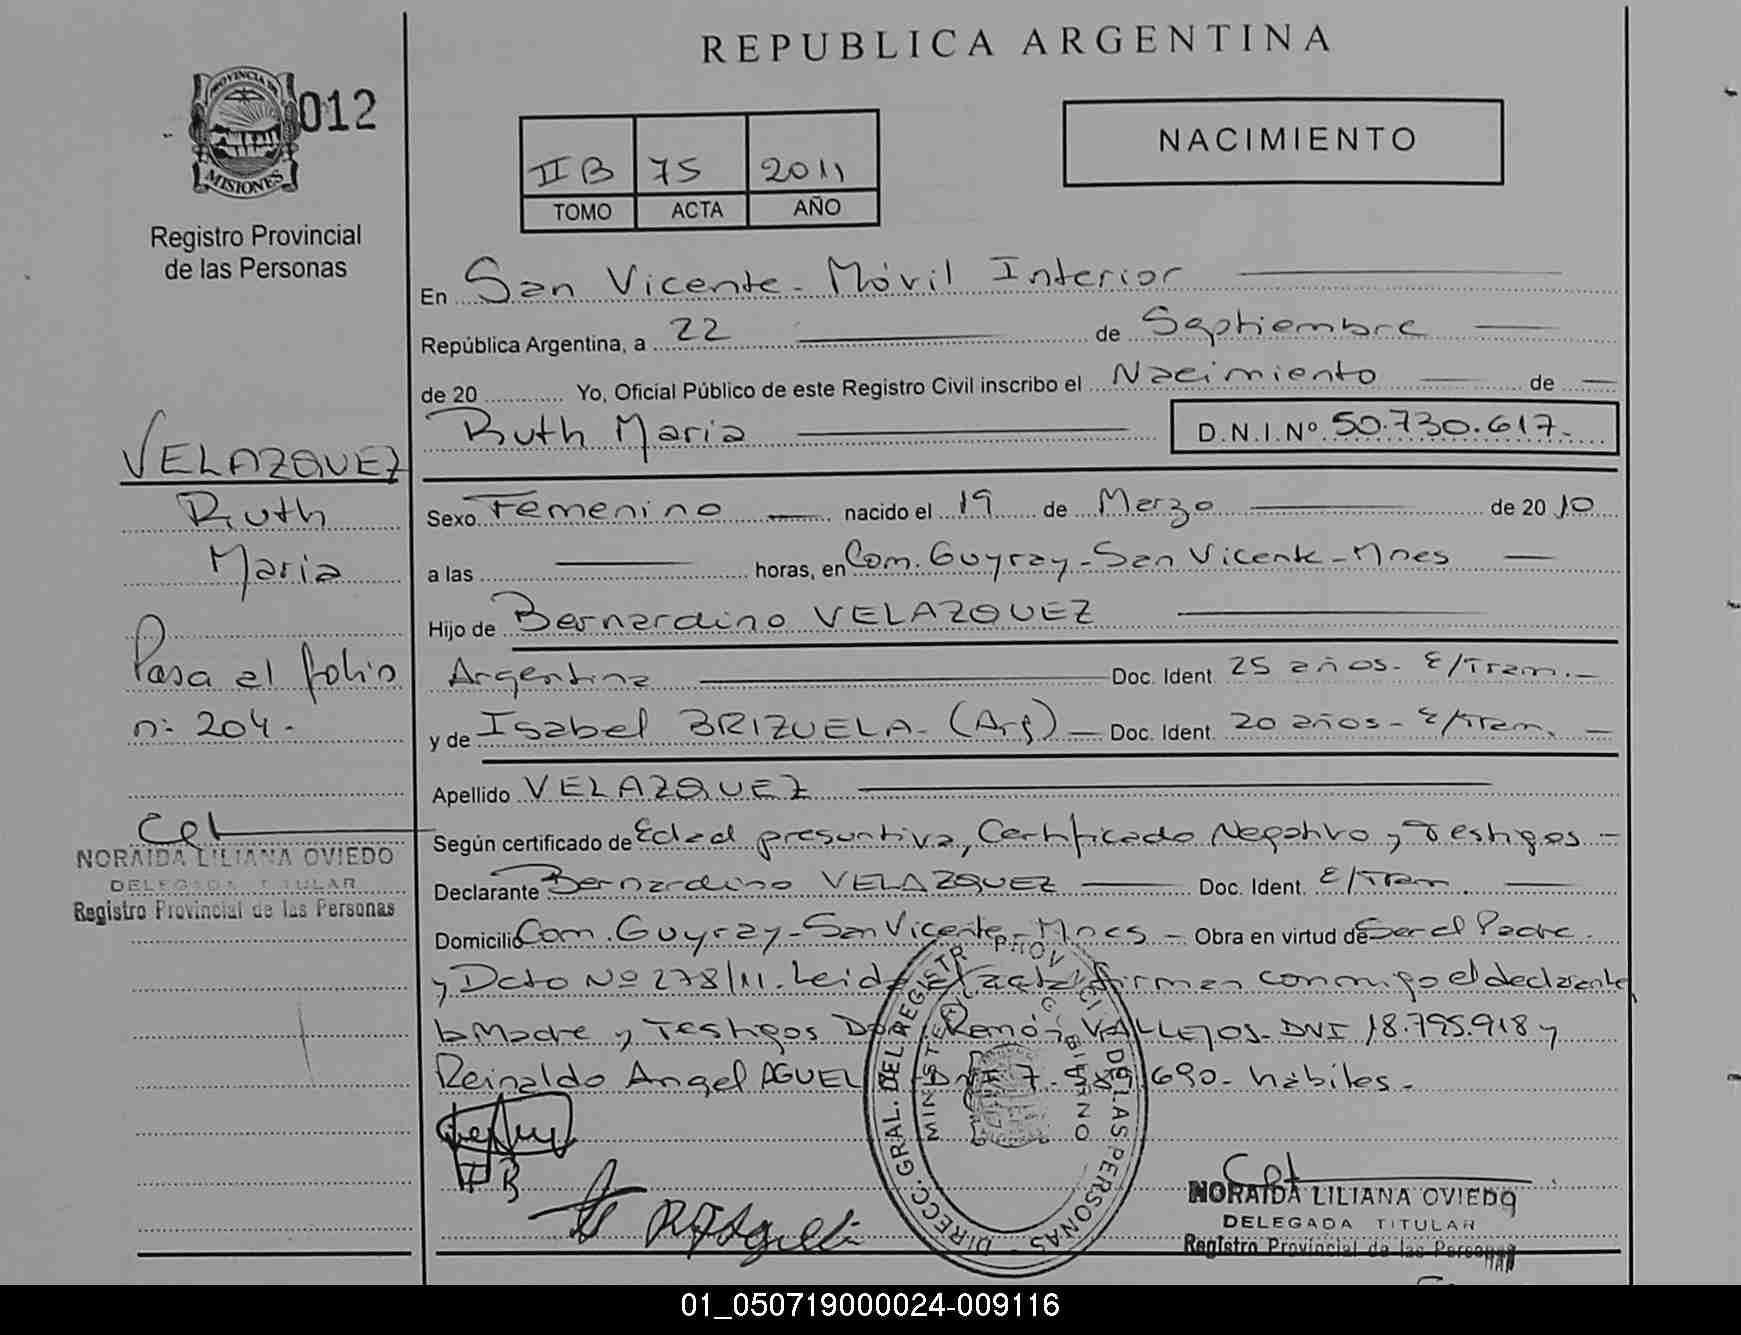 REPUBLICA ARGENTINA
PROVINCIA DE
MISIONES
012
Registro Provincial
de las Personas
II B 75 2011
TOMO ACTA AÑO
NACIMIENTO
En San Vicente - Móvil Interior
República Argentina, a 22 de Septiembre
de 20 Yo, Oficial Público de este Registro Civil inscribo el Nacimiento de
Ruth Maria D.N.I.Nº 50.730.617.-
VELAZQUEZ
Ruth
Maria
Pasa al folio
nº 204.-
Sexo Femenino nacido el 19 de Marzo de 2010
a las horas, en Com. Guyray - San Vicente - Mnes
Hijo de Bernardino VELAZQUEZ
Argentina Doc. Ident 25 años - E/Tram.-
y de Isabel BRIZUELA - (Arg) Doc. Ident. 20 años - E/tram.
Apellido VELAZQUEZ
Según certificado de Edad presuntiva, Certificado Negativo y Testigos -
Declarante Bernardino VELAZQUEZ Doc. Ident. E/Tram
Domicilio Com. Guyray - San Vicente - Mnes - Obra en virtud de Ser el Padre
y Dcto Nº 278/11. Leida el acta firman conmigo el declarante,
la Madre y Testigos Ramón VALLEJOS - DNI 18.795.918 y
Reinaldo Angel AGUEL DNI 7. 690 - hábiles -
I B
NORAIDA LILIANA OVIEDO
DELEGADA TITULAR
Registro Provincial de las Personas
DIRECC. GRAL. DEL REGISTR PROVINCI DE LAS PERSONAS
MINISTE GOBIERNO
NORAIDA LILIANA OVIEDO
DELEGADA TITULAR
Registro Provincial de las Personas
01_050719000024-009116